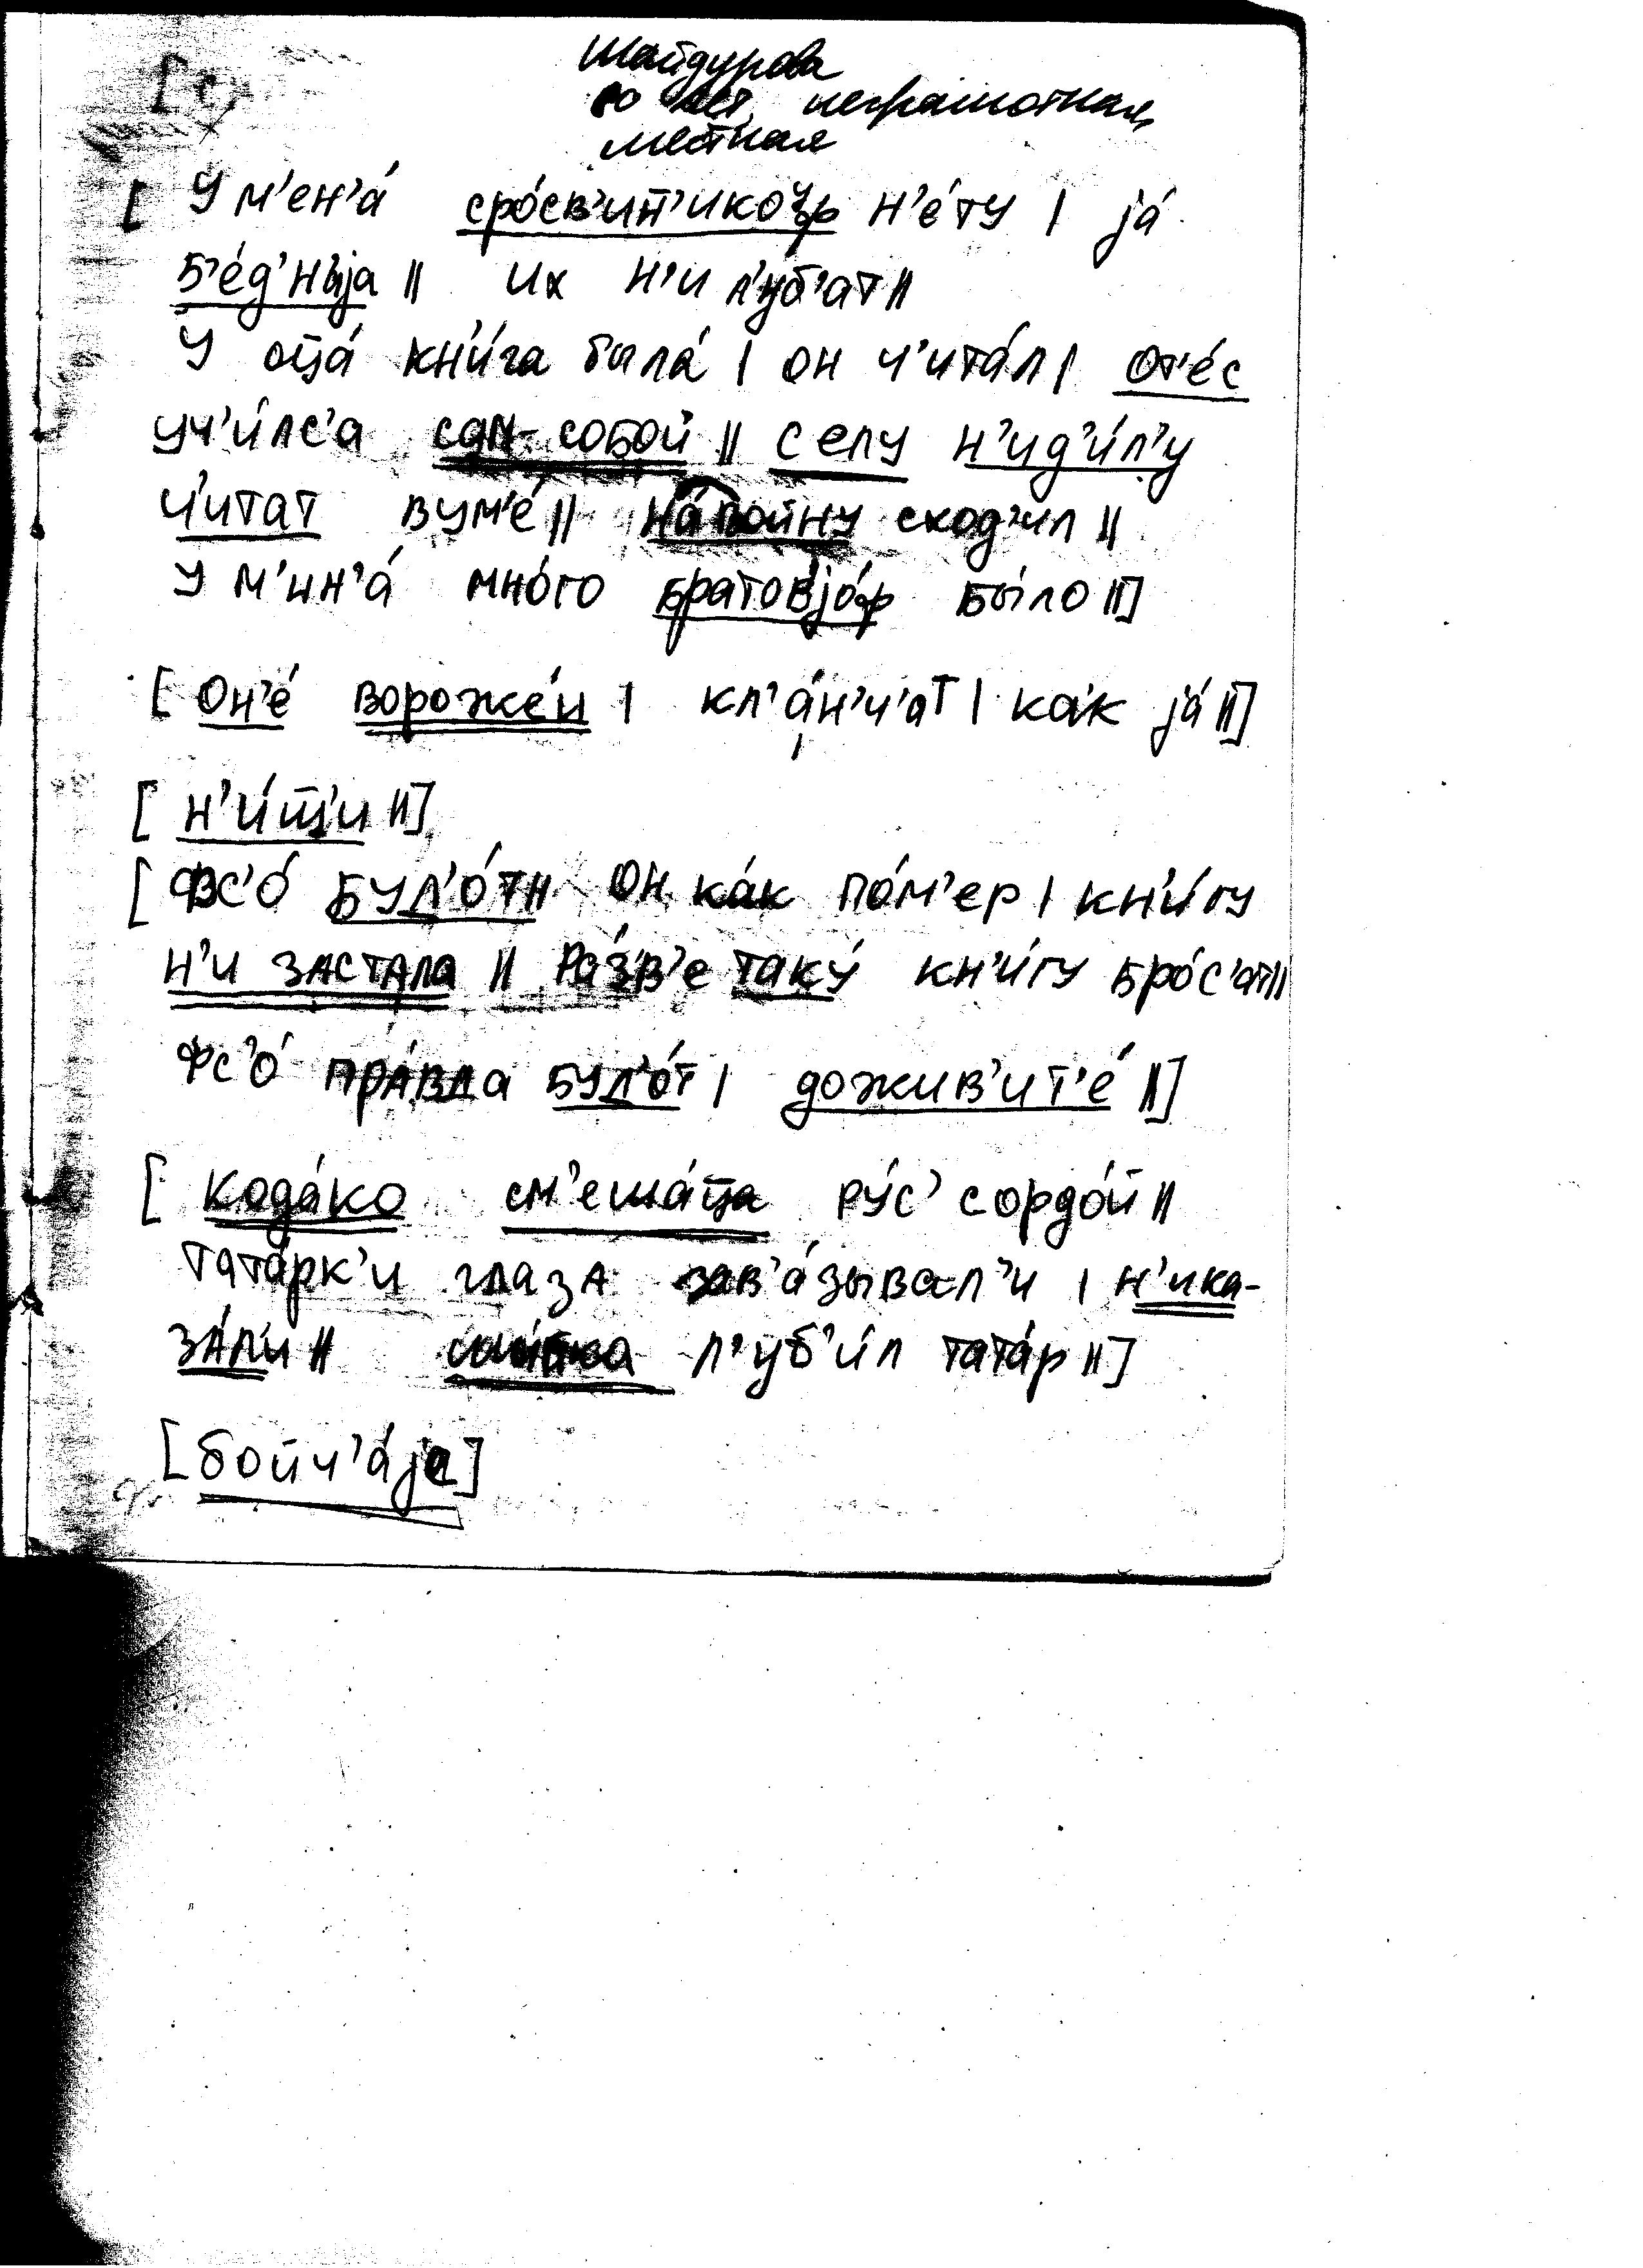 Шайдурова
80 лет, неграмотная,
местная
[ У м'ен'а́ сро́св'ит'ико̄ф н'е́ту | jа́
б'е́д'ныjа || их н'и л'у́б'ат ||
У оца́ кн'и́га была́ | он ч'ита́л | от'е́с
уч'и́лс'а сам-собой || селу н'ид'и́л'у
ч'итат вум'е́ || на́войну сход'ил ||
У м'ин'а́ мно́го братовjо́ф бы́ло || ]
[ Он'е́ вороже́и | кл'а́н'ч'ат | ка́к jа́ || ]
[ н'и́щ'и || ]
[ Фс'о́ бул'о́т он ка́к по́м'ер | кн'и́гу
н'и застала || Ра́зв'е таку́ кн'и́гу бро́с'ат ||
Фс'о́ пра́вда бул'о́т | дожив'ит'е́ || ]
[ Кода́ко см'еша́ца ру́с' с ордо́й ||
Тата́рк'и глаза зав'а́зывал'и | н'ика-
за́ли || л'уб'и́л тата́р || ]
[бойч'а́jа]